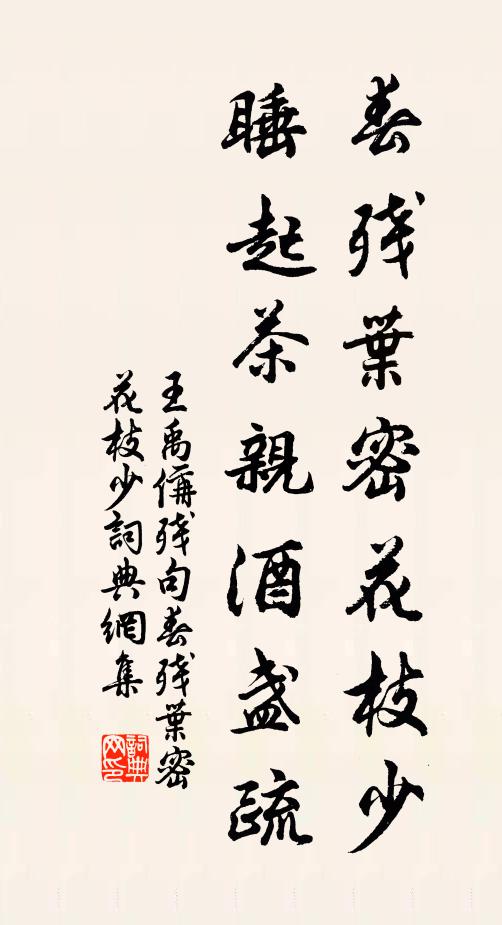 春残葉密花枝少
睡起茶親酒盏疏
王禹偁残句春残葉密
花枝少詞典網集
詞典
网印